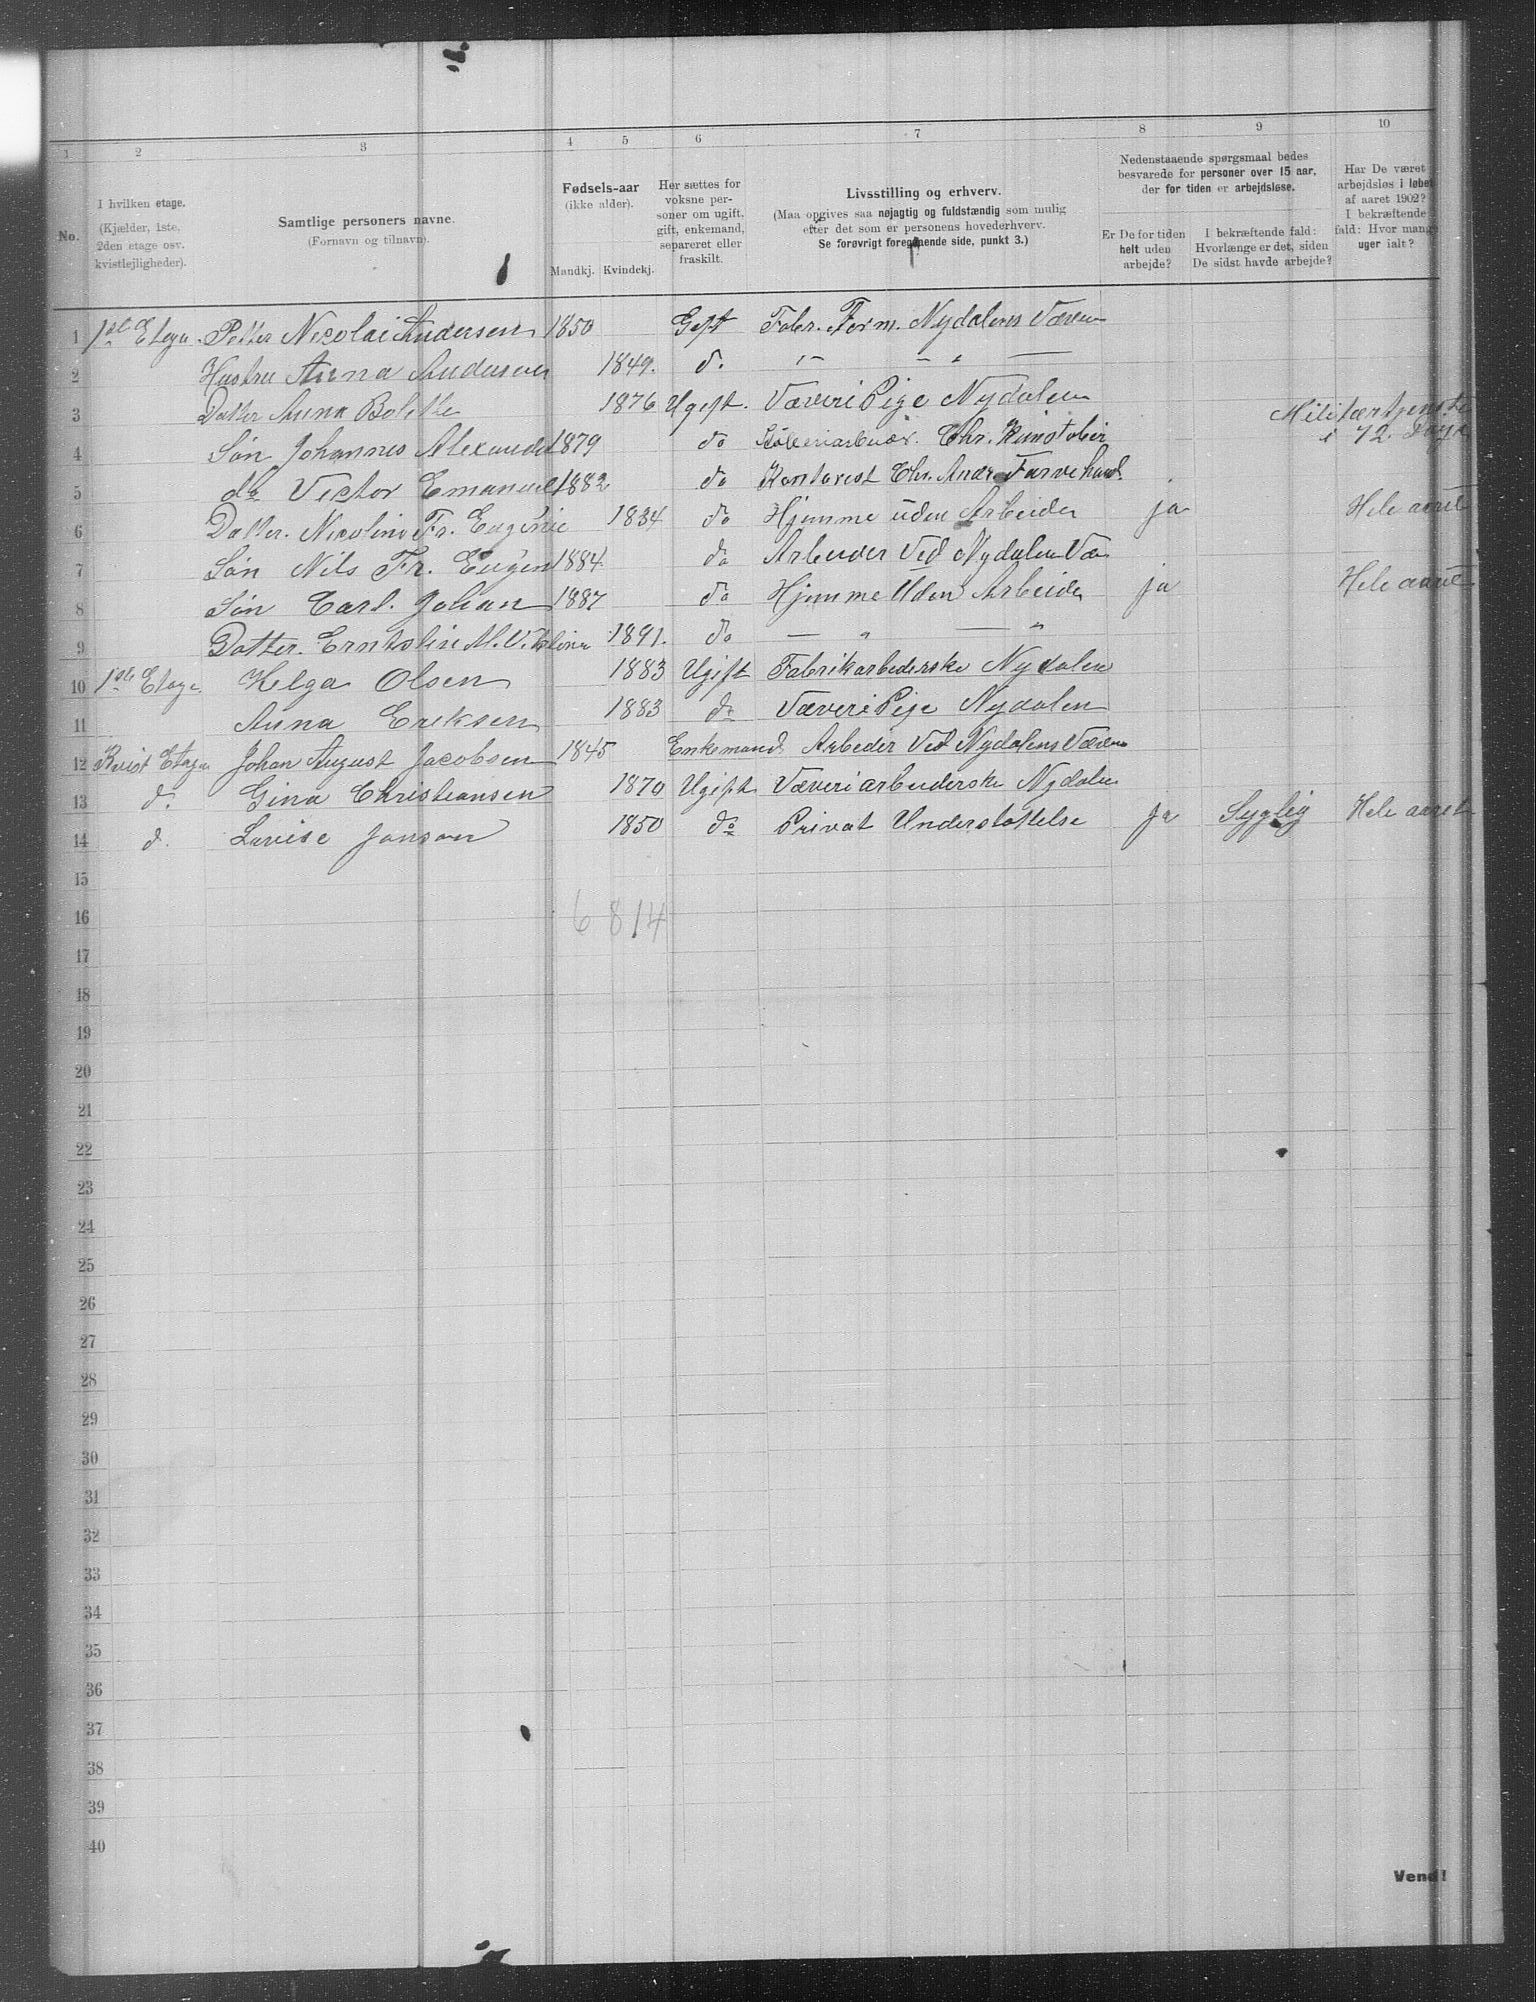 1 2 3 4 5 6 7 8 9 10
No.
I hvilken etage.
(Kjælder, 1ste,
2den etage osv.
kvistlejligheder).
Samtlige personers navne.
(Fornavn og tilnavn).
Fødsels-aar
(ikke alder).
Mandkj. Kvindekj.
Her sættes for
voksne per-
soner om ugift,
gift, enkemand,
separeret eller
fraskilt.
Livsstilling og erhverv.
(Maa opgives saa nøjagtig og fuldstændig som mulig
efter det som er personens hovederhverv.
Se forøvrigt foregaaende side, punkt 3.)
Nedenstaaende spørgsmaal bedes
besvarede for personer over 15 aar,
der for tiden er arbejdsløse.
Er De for tiden
helt uden
arbejde?
I bekræftende fald:
Hvorlænge er det, siden
De sidst havde arbejde?
Har De været
arbejdsløs i løbet
af aaret 1902?
I bekræftende
fald: Hvor mange
uger ialt?
1 1st Etage Petter Nicolai Andersen 1850 Gift Fabr. Form. Nydalens Væveri
2 Hustru Anna Andersen 1849. d. " — " —
3 Datter Anna Bolette 1876 Ugift. VæveriPige Nydalen
4 Søn Johannes Alexander 1879 do Chr. Militærtjeneste i 72. Dage
5 do Victor Emanuel 1882 do Kontorist Chr. Andr. Farvehand.
6 Datter. Nicoline Fr. Eugenie 1834 do Hjemme uden Arbeide ja Hele aaret
7 Søn Nils Fr. Eugen 1884. do Arbeider Ved Nydalen Væ
8 Søn Carl. Johan 1887 do Hjemme Uden Arbeide ja Hele aaret
9 Datter. M. 1891. do — " — "
10 1ste Etage Helga Olsen 1883 Ugift Fabrikarbederske Nydalen
11 Anna Eriksen 1883 do VæveriPige Nydalen
12 Kvist Etage Johan August Jacobsen 1845 Enkemand Arbeder Ved Nydalens Væveri
13 d. Gina Christiansen 1870 Ugift Væveriarbeiderske Nydalen
14 d. Lovise Jonson 1850 do Privat Understøttelse Ja Syglig Hele aaret
15
16 6 8 14
17
18
19
20
21
22
23
24
25
26
27
28
29
30
31
32
33
34
35
36
37
38
39
40
Vend!